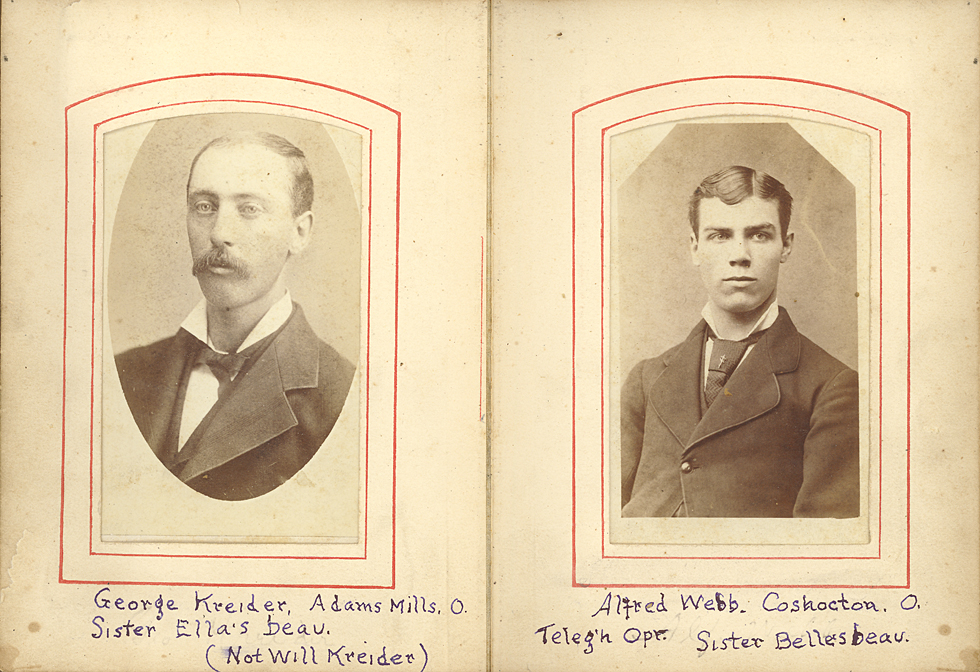 George Kreider, Adams Mills, O.
Sister Ella's beau.
(Not Will Kreider)
Alfred Webb. Coshocton. O.
Teleg'h Opr. Sister Belles beau.